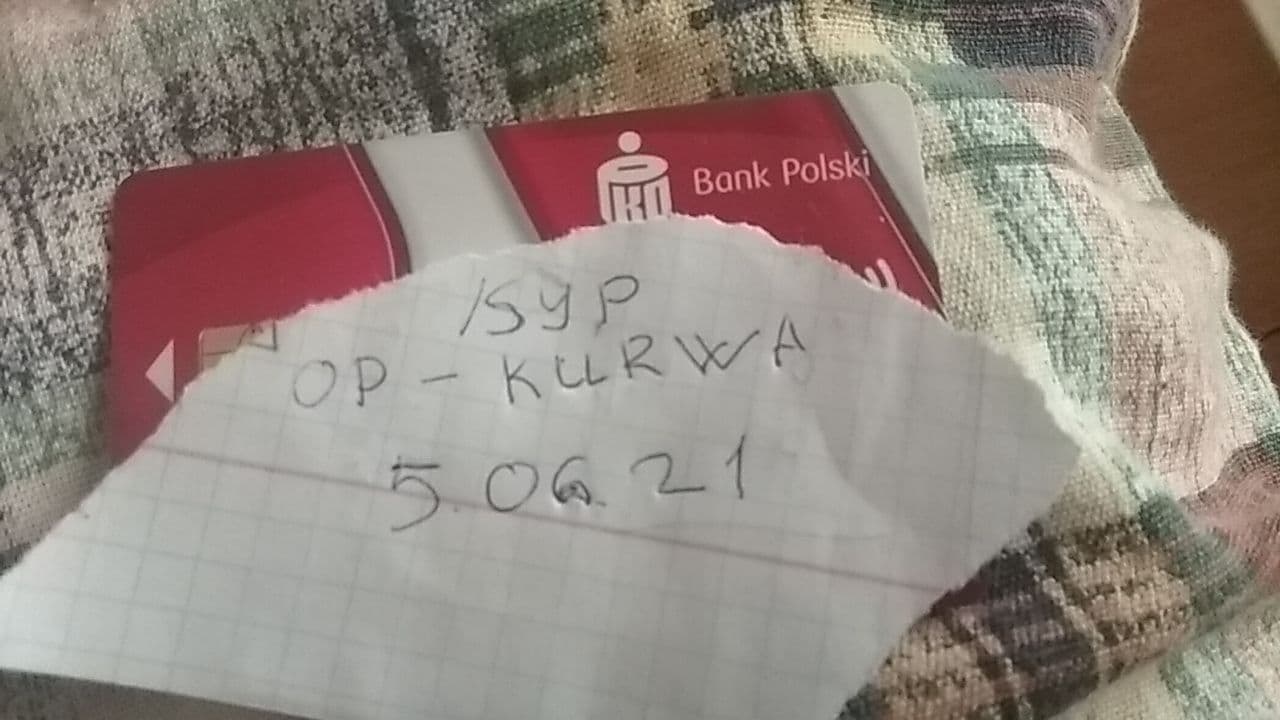 PKO
Bank Polski
/SYP
OP - KURWA
5.06.21